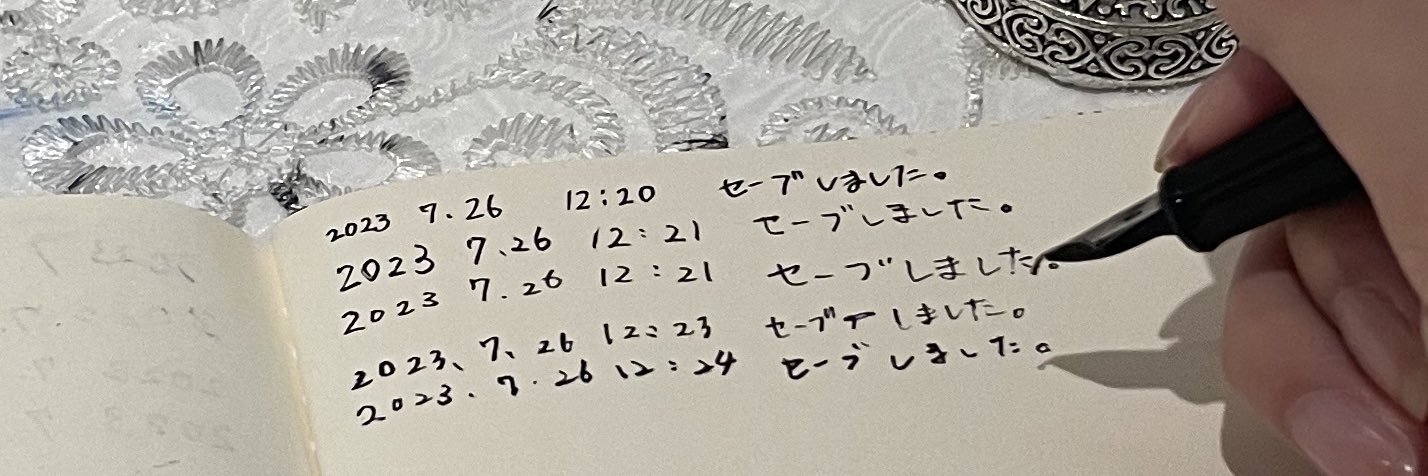 2023 7.26 12:20 セーブしました。
2023 7、26 12:21 セーブしました。
2023 7.26 12:21 セーブしました。
2023、7、26 12:23 セーブしました。
2023.7.26 12:24 セーブしました。